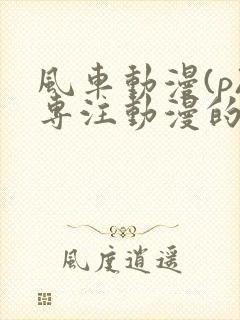 風車動漫(p
專注動漫的
風度逍遙